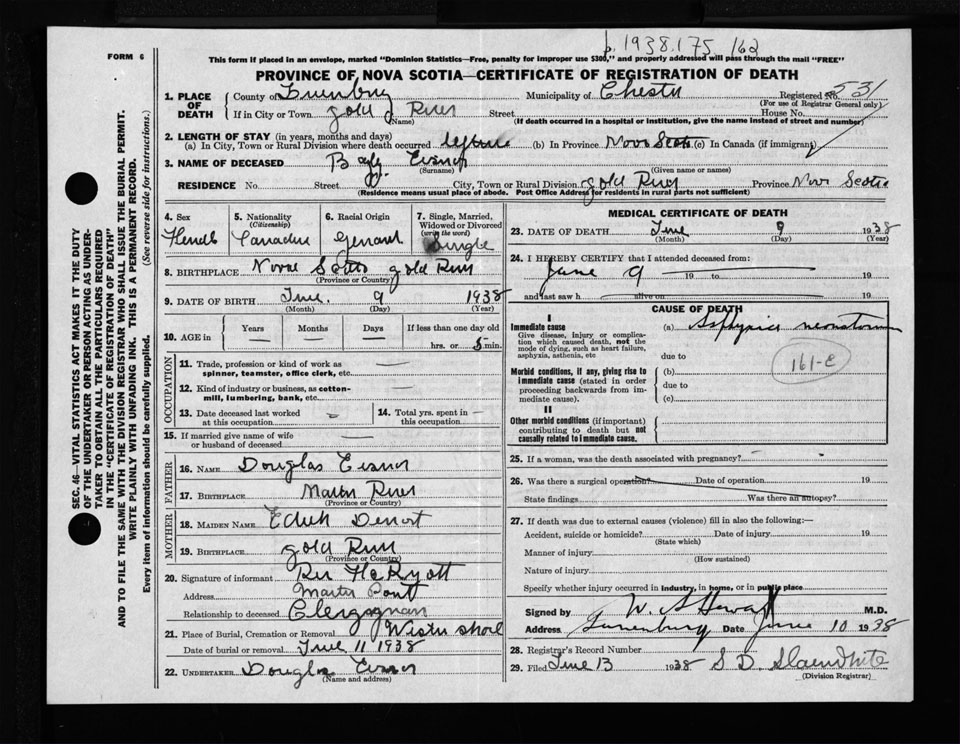 1938.175 162
FORM 6
This form if placed in an envelope, marked "Dominion Statistics—Free, penalty for improper use $300," and properly addressed will pass through the mail "FREE"
PROVINCE OF NOVA SCOTIA—CERTIFICATE OF REGISTRATION OF DEATH
1. PLACE OF DEATH County of Lunenburg Municipality of Chester Registered No. 531
(For use of Registrar General only)
If in City or Town gold River Street House No.
(Name) (If death occurred in a hospital or institution, give the name instead of street and number)
2. LENGTH OF STAY (in years, months and days)
(a) In City, Town or Rural Division where death occurred lifetime (b) In Province Nova Scotia (c) In Canada (if immigrant)
3. NAME OF DECEASED Baby Eisnor
(Surname) (Given name or names)
RESIDENCE No. Street City, Town or Rural Division gold River Province Nova Scotia
(Residence means usual place of abode. Post Office Address for residents in rural parts not sufficient)
4. Sex 5. Nationality 6. Racial Origin 7. Single, Married,
(Citizenship) Widowed or Divorced
(write the word)
Female Canadian German Single
8. BIRTHPLACE Nova Scotia gold River
(Province or Country)
9. DATE OF BIRTH June 9 1938
(Month) (Day) (Year)
10. AGE in Years Months Days If less than one day old
hrs. or 5 min.
OCCUPATION
11. Trade, profession or kind of work as
spinner, teamster, office clerk, etc.
12. Kind of industry or business, as cotton-
mill, lumbering, bank, etc.
13. Date deceased last worked 14. Total yrs. spent in
at this occupation this occupation
15. If married give name of wife
or husband of deceased
FATHER
16. NAME Douglas Eisnor
17. BIRTHPLACE Martin River
(Province or Country)
MOTHER
18. MAIDEN NAME Edith
19. BIRTHPLACE gold River
(Province or Country)
20. Signature of informant Rev
Address Martin Point
Relationship to deceased Clergyman
21. Place of Burial, Cremation or Removal Western shore
Date of burial or removal June 11 1938
22. UNDERTAKER Douglas Eisnor
(Name and address)
MEDICAL CERTIFICATE OF DEATH
23. DATE OF DEATH June 9 1938
(Month) (Day) (Year)
24. I HEREBY CERTIFY that I attended deceased from:
June 9 19 to 19
and last saw h alive on 19
CAUSE OF DEATH
I
Immediate cause (a) Asphyxia neonatorum
Give disease, injury or complica-
tion which caused death, not the
mode of dying, such as heart failure,
asphyxia, asthenia, etc
due to
161-E
Morbid conditions, if any, giving rise to (b)
immediate cause (stated in order
proceeding backwards from im-
mediate cause).
due to
(c)
II
Other morbid conditions (if important)
contributing to death but not
causally related to immediate cause.
25. If a woman, was the death associated with pregnancy?
26. Was there a surgical operation Date of operation 19
State findings Was there an autopsy?
27. If death was due to external causes (violence) fill in also the following:—
Accident, suicide or homicide? Date of injury 19
(State which)
Manner of injury
(How sustained)
Nature of injury
Specify whether injury occurred in industry, in home, or in public place
Signed by W. A Hewatt M.D.
Address Lunenburg Date June 10 1938
28. Registrar's Record Number
29. Filed June 13 1938 S D. Slauenwhite
(Division Registrar)
SEC. 46—VITAL STATISTICS ACT MAKES IT THE DUTY
OF THE UNDERTAKER OR PERSON ACTING AS UNDER-
TAKER TO OBTAIN ALL THE PARTICULARS REQUIRED
IN THE "CERTIFICATE OF REGISTRATION OF DEATH"
AND TO FILE THE SAME WITH THE DIVISION REGISTRAR WHO SHALL ISSUE THE BURIAL PERMIT.
WRITE PLAINLY WITH UNFADING INK. THIS IS A PERMANENT RECORD.
Every item of information should be carefully supplied. (See reverse side for instructions.)